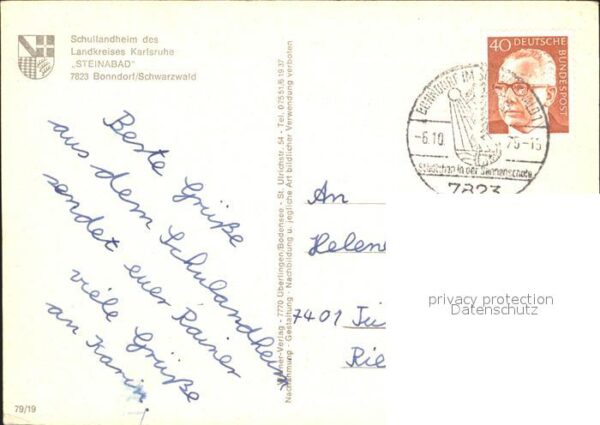 Schullandheim des
Landkreises Karlsruhe
„STEINABAD"
7823 Bonndorf/Schwarzwald
Beste Grüße
aus dem Schulandheim
sendet euer Rainer
viele Grüße
an Karin
79/19
-Verlag - 7770 Überlingen/Bodensee - St. Ulrichstr. 54 - Tel. 07551/61937
Nachahmung - Gestaltung - Nachbildung u. jegliche Art bildlicher Verwendung verboten
40 DEUTSCHE
BUNDESPOST
BONNDORF IM
-6.10. 75-15
in der
7823
An
Helene
7401
Rie
privacy protection
Datenschutz